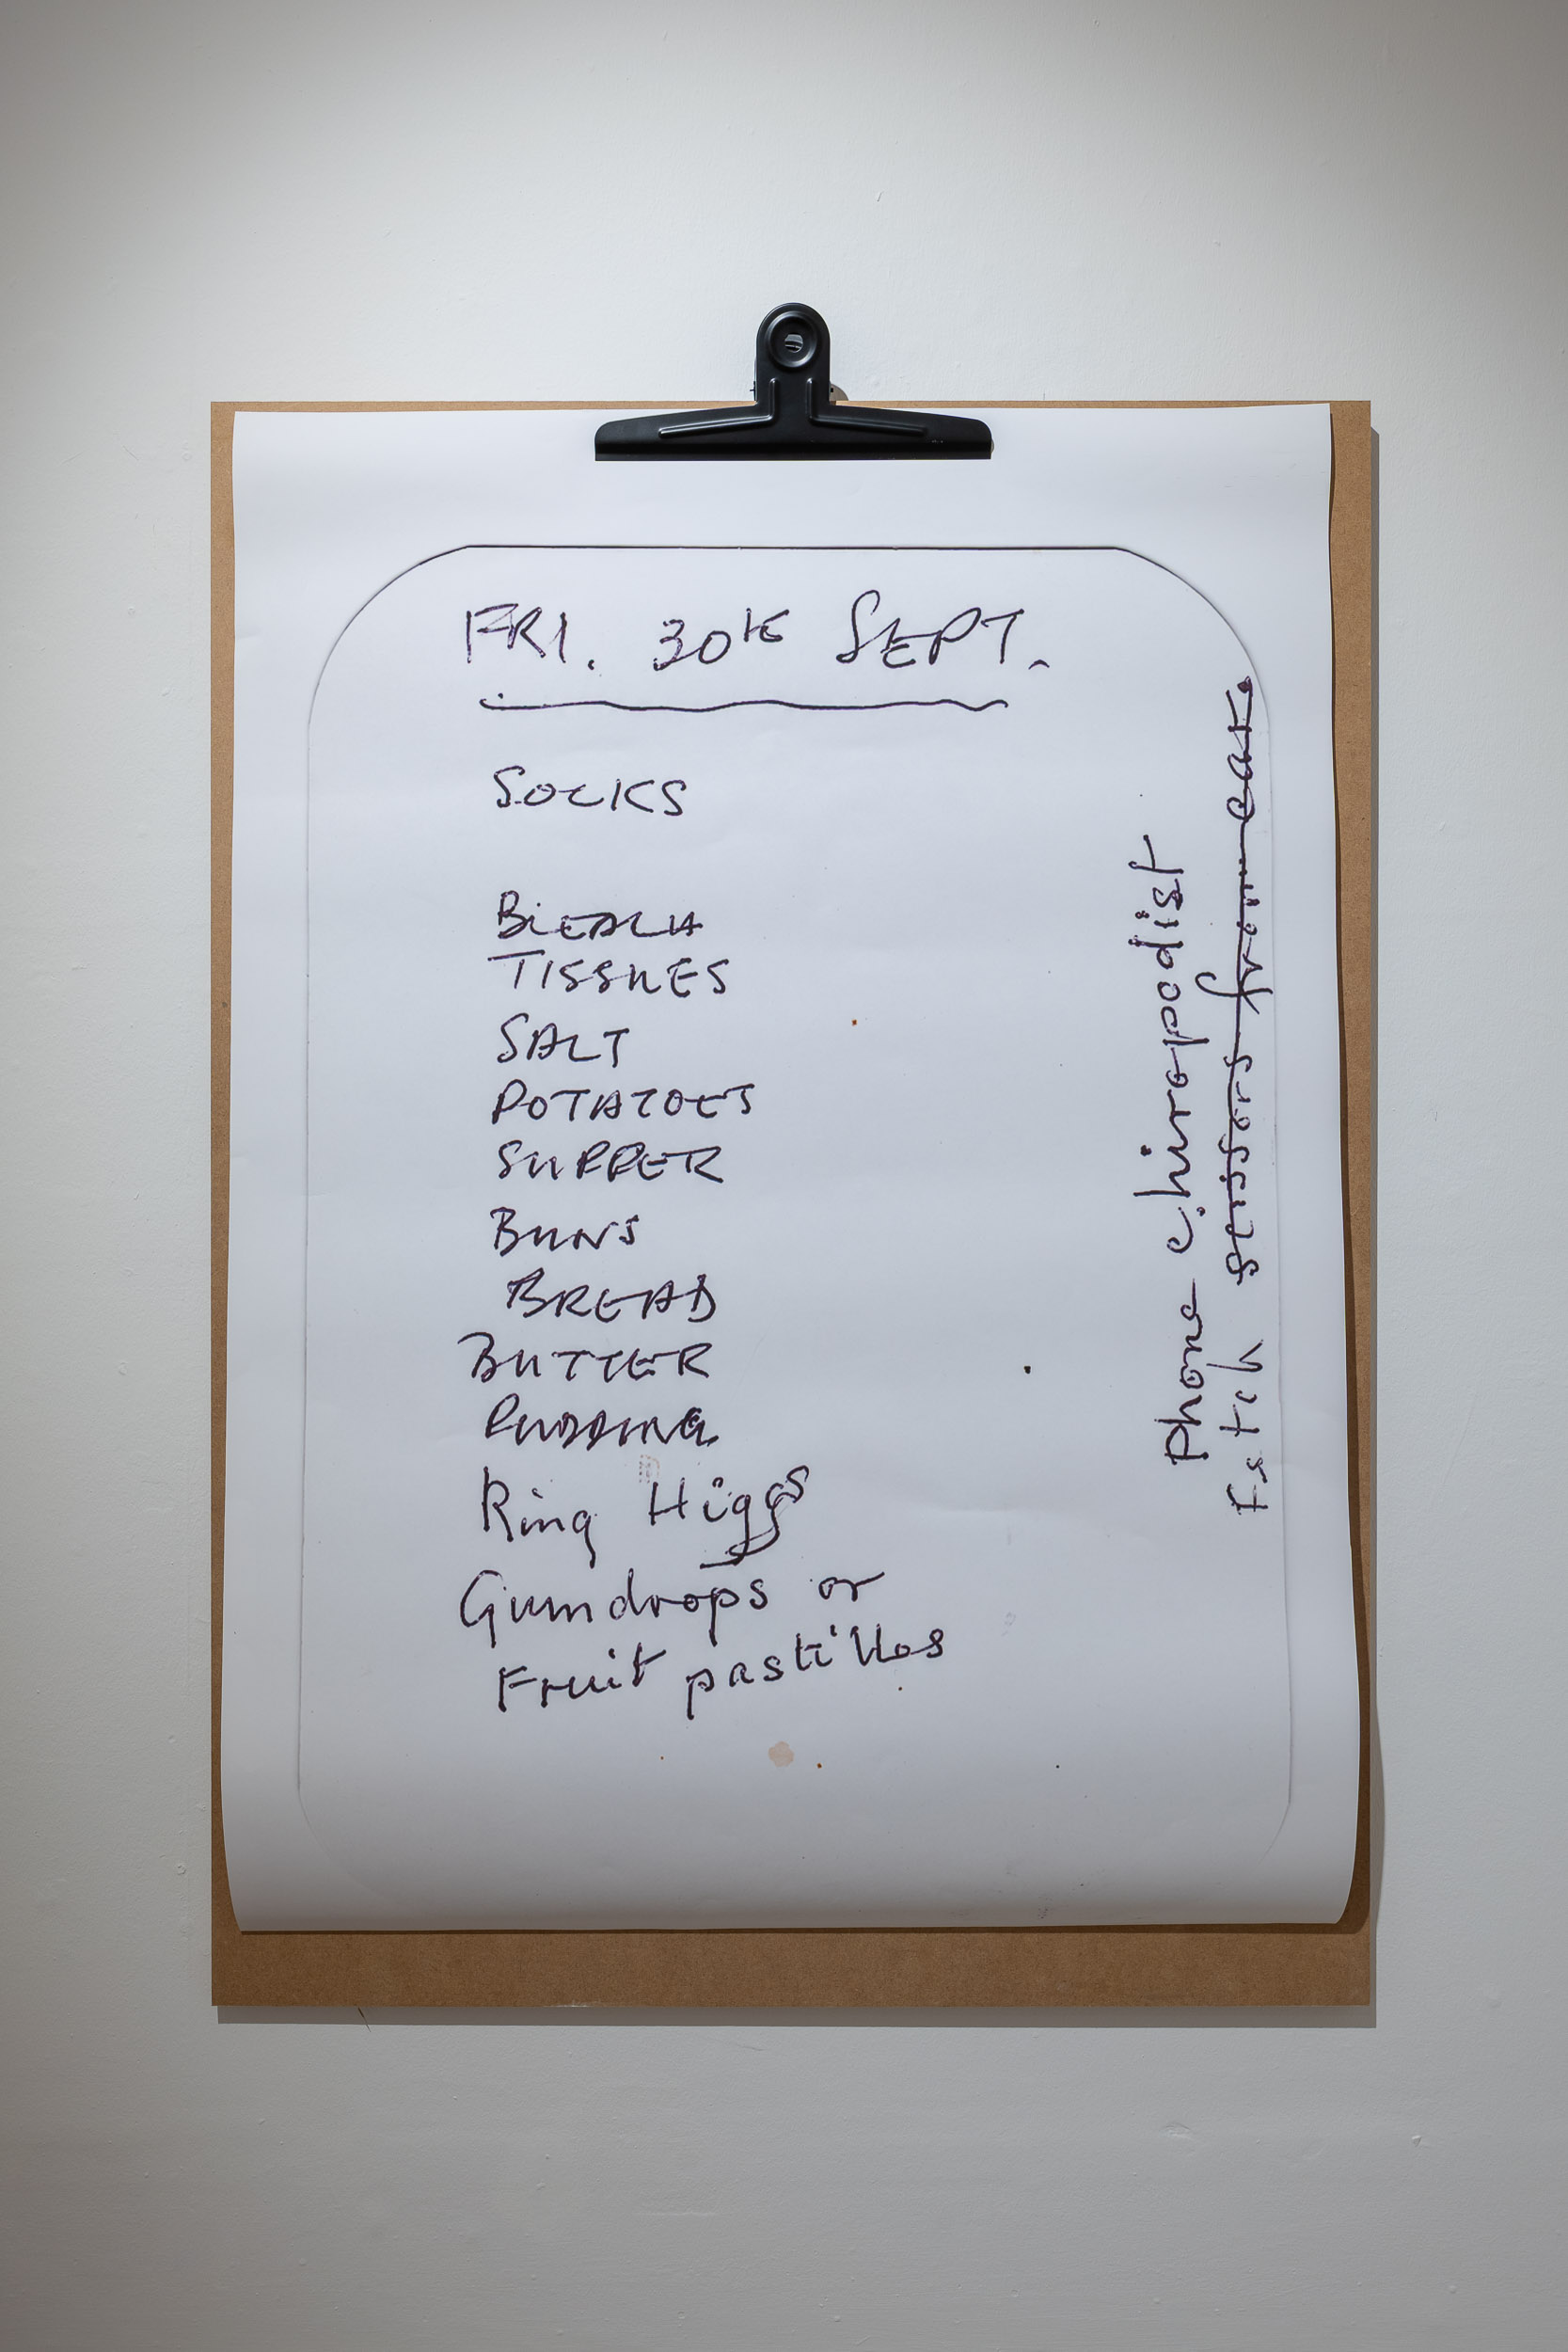 FRI. 30th SEPT.
SOCKS
BLEACH
TISSUES
SALT
POTATOES
SUPPER
BUNS
BREAD
BUTTER
PUDDING
Ring Higgs
Gumdrops or
Fruit pastilles
Phone chiropodist
Fetch scissors from car.